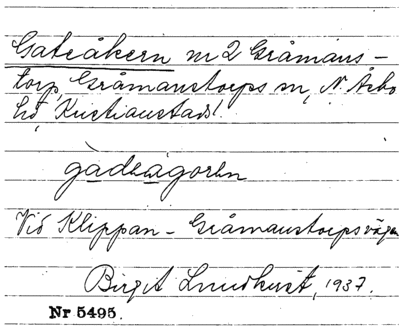 Gateåkern nr 2 Gråmans-
torp, Gråmanstorps sn, N. Åsbo
hd, Kristianstads l.
gàdeågorен
Vid Klippan - Gråmanstorpsvägen
Birgit Lundkvist, 1937.
Nr 5495.